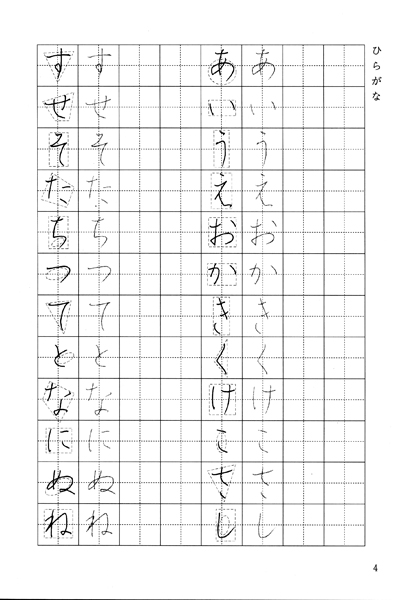 ひらがな
あいうえおかきくけこさし
あいうえおかきくけこさし
すせそたちつてとなにぬね
すせそたちつてとなにぬね
4